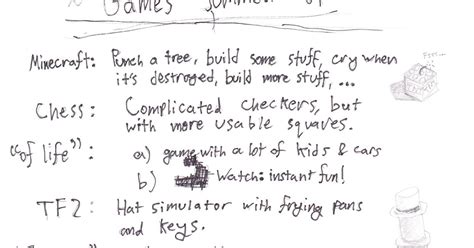 Games
Minecraft: Punch a tree, build some stuff, cry when
it's destroyed, build more stuff, ...
Chess: Complicated checkers, but
with more usable squares.
"of life": a) game with a lot of kids & cars
b) Watch: instant fun!
TF2: Hat simulator with frying pans
and keys.